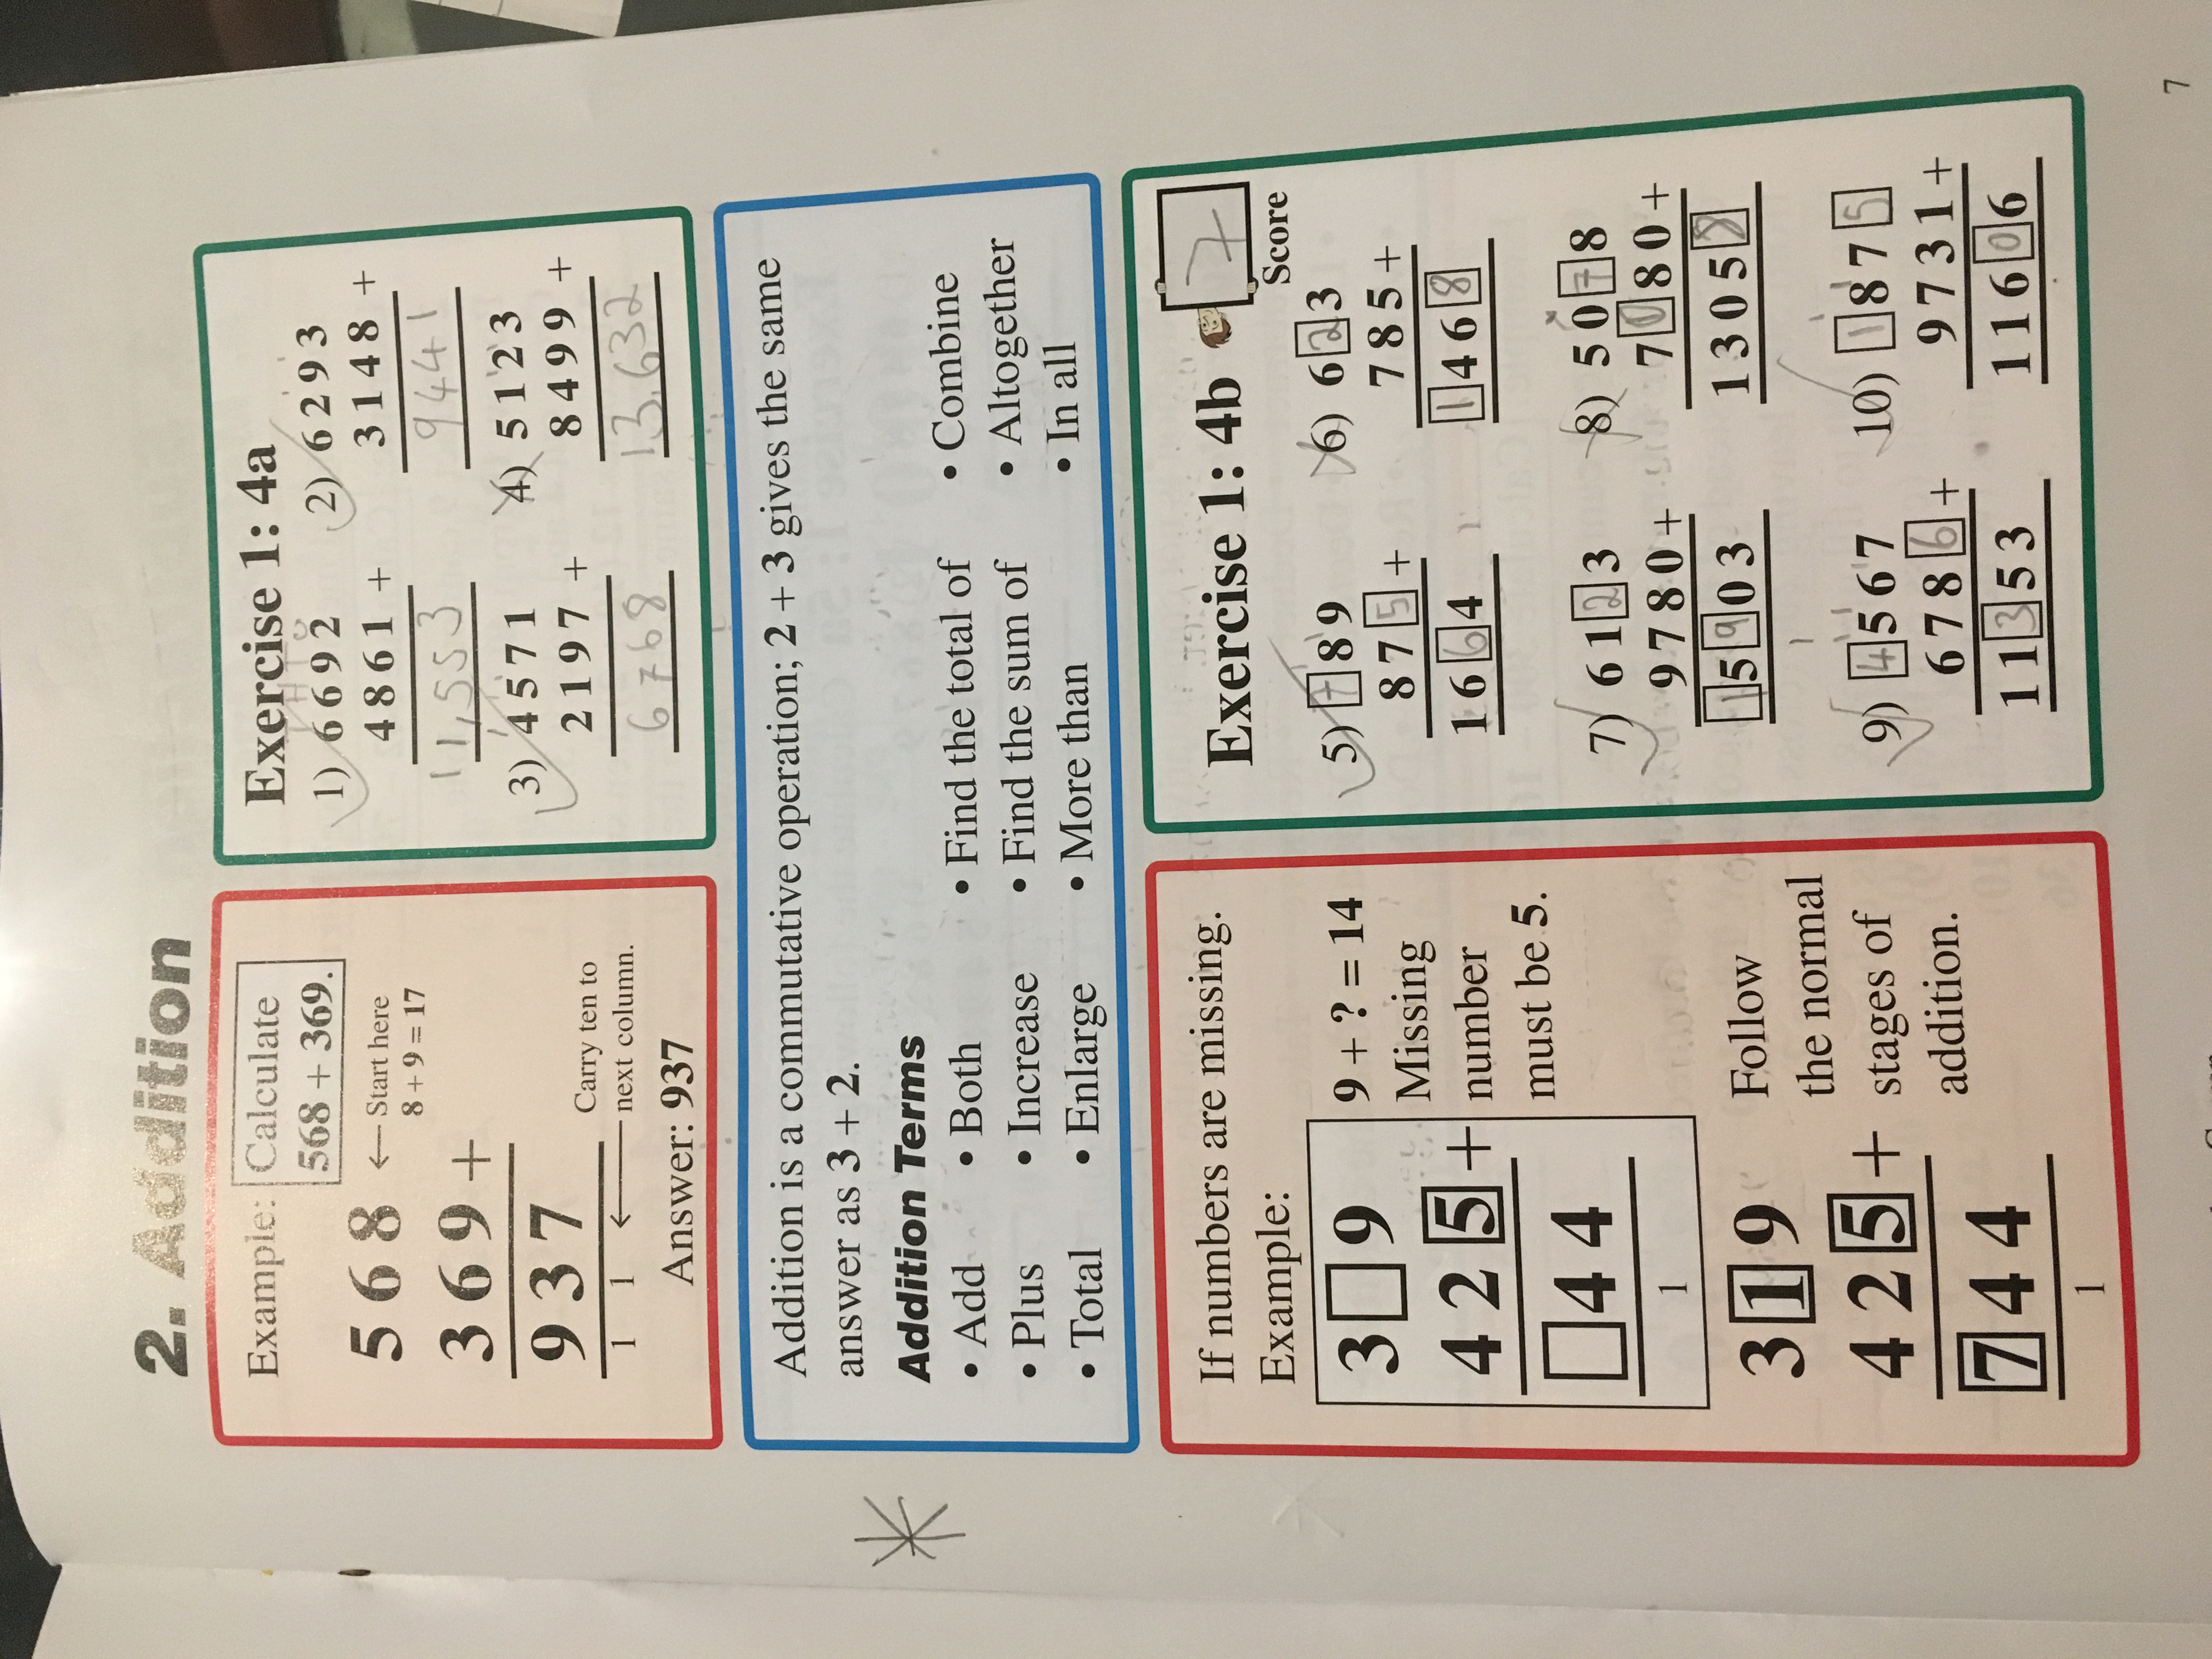 2. Addition
Example: Calculate
568 + 369.
5 6 8 ← Start here
8 + 9 = 17
3 6 9 +
9 3 7
Carry ten to
1 1 ← next column.
Answer: 937
Exercise 1: 4a
T H T U
1) 6 6 9 2
4 8 6 1 +
11,553
2) 6 2 9 3
3 1 4 8 +
9441
3) 4 5 7 1
2 1 9 7 +
6768
4) 5 1 2 3
8 4 9 9 +
13,632
Addition is a commutative operation; 2 + 3 gives the same
answer as 3 + 2.
Addition Terms
• Add • Both • Find the total of • Combine
• Plus • Increase • Find the sum of • Altogether
• Total • Enlarge • More than • In all
If numbers are missing.
Example:
3 □ 9
4 2 5 +
□ 4 4
1
9 + ? = 14
Missing
number
must be 5.
3 1 9
4 2 5 +
7 4 4
1
Follow
the normal
stages of
addition.
Exercise 1: 4b
7
Score
5) 7 8 9
8 7 5 +
1 6 6 4
6) 6 2 3
7 8 5 +
1 4 6 8
7) 6 1 2 3
9 7 8 0 +
1 5 9 0 3
8) 5 0 7 8
7 0 8 0 +
1 3 0 5 8
9) 4 5 6 7
6 7 8 6 +
1 1 3 5 3
10) 1 8 7 5
9 7 3 1 +
1 1 6 0 6
7